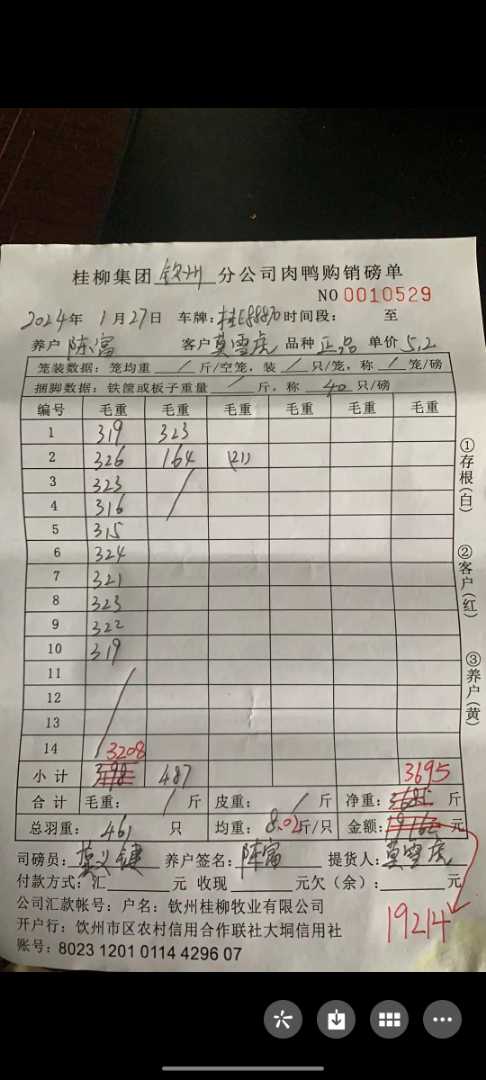 桂柳集团 钦州 分公司肉鸭购销磅单
NO 0010529
2024年 1月27日 车牌:桂E88870 时间段: 至
养户 陈富 客户 莫雪虎 品种 正品 单价 5.2
笼装数据:笼均重 / 斤/空笼,装 / 只/笼,称 / 笼/磅
捆脚数据:铁筐或板子重量 / 斤,称 40 只/磅
编号 毛重 毛重 毛重 毛重 毛重 毛重
1 319 323
2 326 164 (21)
3 323 /
4 316
5 315
6 324
7 321
8 323
9 322
10 319
11 /
12
13
14
3208
小计 487 3695
合计 毛重: / 斤 皮重: / 斤 净重: 3685 斤
总羽重: 461 只 均重: 8.02斤/只 金额: 19162 元
司磅员: 养户签名: 陈富 提货人: 莫雪虎
付款方式:汇 元 收现 元欠(余): 元
19214
公司汇款帐号:户名:钦州桂柳牧业有限公司
开户行:钦州市区农村信用合作联社大垌信用社
账号:8023 1201 0114 4296 07
①存根(白)
②客户(红)
③养户(黄)